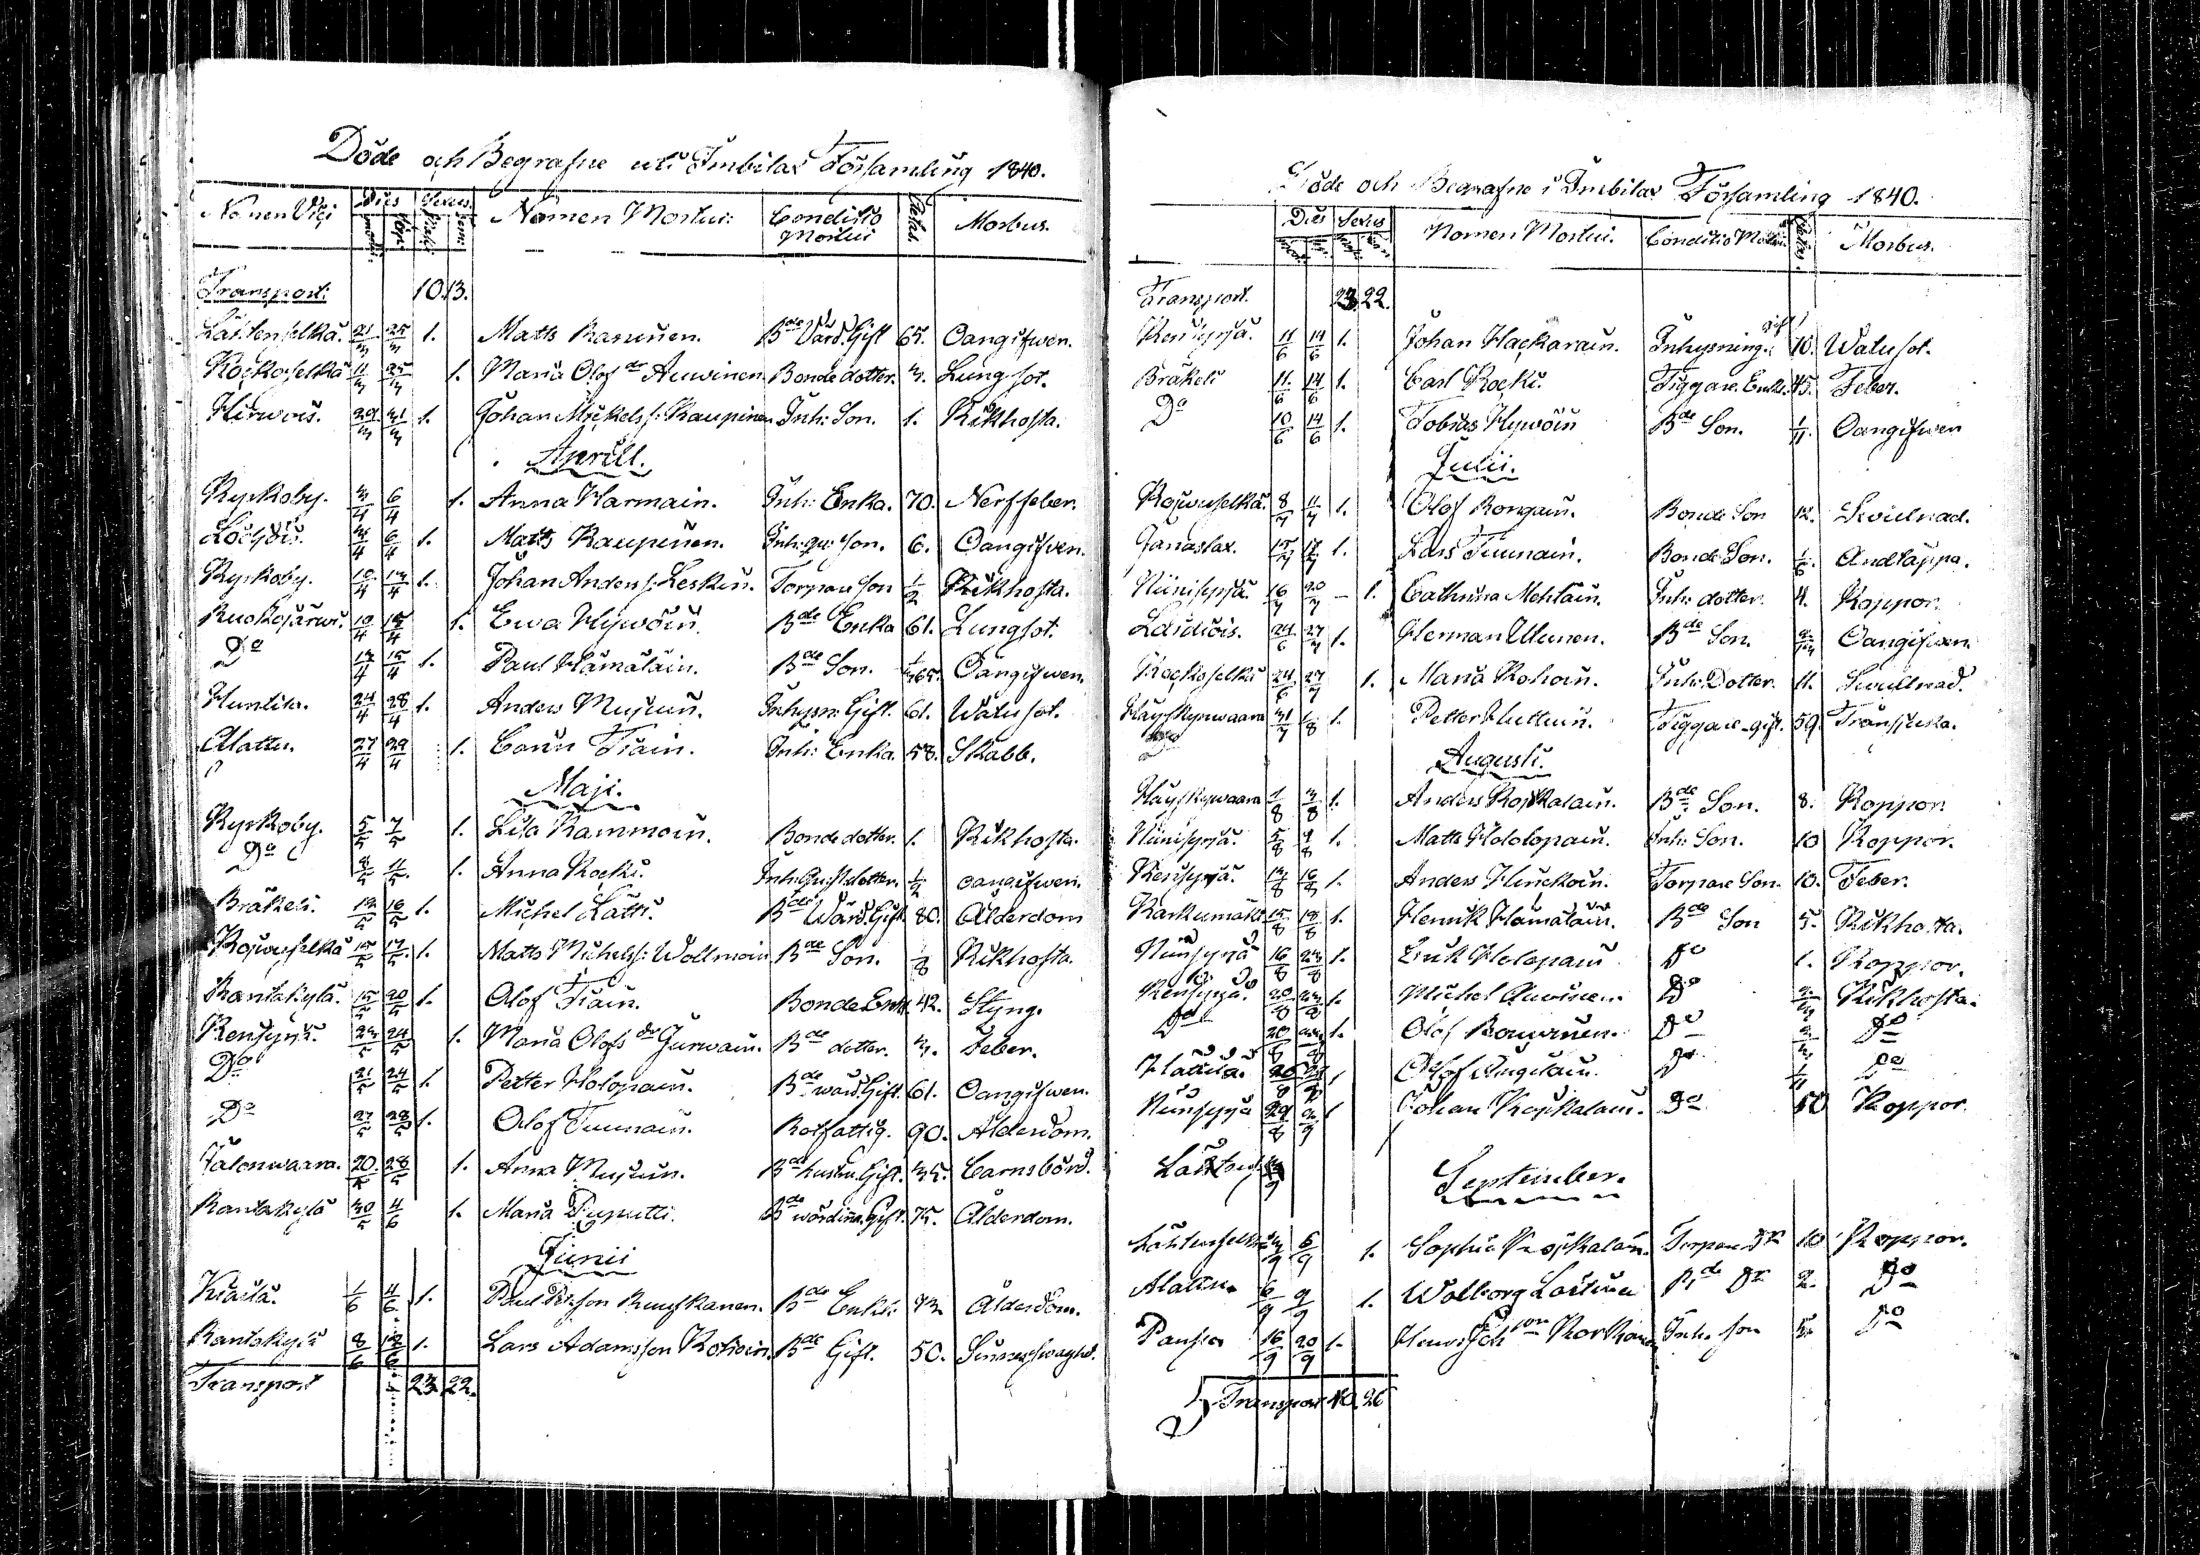 Döde och Begrafne uti Imbilax Församling 1840.
Nomen Vici Dies Sexus Nomen Mortui: Conditio Mortui Aetas. Morbus.
Transport: 10. 13.
Lahtenselkä. 21/3 25/3 1. Matts Rasinen. Bde Värd. Gift 65. Oangifwen.
Kockoselkä 11/3 25/3 1. Maria Olofdr Auwinen Bonde dotter. 3. Lungsot.
Hirwois. 29/3 31/3 1. Johan Mickelss: Kaupinen Inh: Son. 1. Kikhosta.
Aprill.
Kyrkoby. 3/4 6/4 1. Anna Harmain. Inh: Enka. 70. Nerffeber.
4/4 6/4 1. Matts Kaupinen. Inh: son. 6. Oangifwen.
Kyrkoby. 10/4 13/4 1. Johan Anderss: Leskin. Torpare son 1/2 Kikhosta.
Ruokojärwi. 10/4 15/4 1. Ewa Hywöin. Bde Enka 61. Lungsot.
Do 13/4 15/4 1. Paul Hämäläin. Bde Son. Oangifwen.
Huntila. 24/4 28/4 1. Anders Mujunen. Inhysn: Gift. 61. Watusot.
Alattu. 27/4 29/4 1. Carin Tiain. Inh: Enka. 58. Skabb.
Maji.
Kyrkoby. 5/5 7/5 1. Lisa Rammoin. Bonde dotter. 1. Kikhosta.
Do 8/5 11/5 1. Anna Kocki. Inh: dotter. 1/2 oangifwen.
Bräkeli. 13/5 16/5 1. Michel Lätti. Bde Wärd. Gift. 80. Ålderdom
Kojwuselkä 15/5 17/5 1. Matts Michelss: Wollmain Bde Son. 1/8 Kikhosta.
Rantakylä. 15/5 20/5 1. Olof Tiain. Bonde Enkl. 42. Styng.
Rensyjä. 23/5 24/5 1. Maria Olofsdr Jurwain. Bde dotter. 3. Feber.
Do 21/5 24/5 1. Petter Holopain. Bde wärd. Gift. 61. Oangifwen.
Do 27/5 28/5 1. Olof Timmain. Rotfattig. 90. Ålderdom.
Jalonwaara. 20/5 28/5 1. Anna Mujuin. Bde hustru. Gift. 35. Barnsbörd.
Rantakylä 30/5 4/6 1. Maria Puputti. Bde wärdinna. Gift. 75. Ålderdom.
Junii
1/6 4/6 1. Paul Petersson Ruuskanen. Bde Enkl. 73. Ålderdom.
Rantakylä 8/6 12/6 1. Lars Adamsson Kohoin. Bde Gift. 50.
Transport 23. 22.
Döde och Begrafne i Imbilax Församling 1840.
Dies Sexus Nomen Mortui. Conditio Mortui. Aetas. Morbus.
Transport. 23. 22.
Rensyjä. 11/6 14/6 1. Johan Hackarain. Inhysning. gift 70. Watusot.
Bräkeli 11/6 14/6 1. Carl Kocki. Tiggare Enkl. 45. Feber.
Do 10/6 14/6 1. Tobias Hywöin Bde Son. 1/11. Oangifwen
Julii.
Kojwuselkä. 8/7 11/7 1. Olof Rongain. Bonde Son 12. Swullnad.
Janaslax. 15/7 17/7 1. Lars Timmain. Bonde Son. 1/6. Andtäppa.
Niinisyjä. 16/7 20/7 – 1. Cathrina Mehtäin. Inh: dotter. 4. Koppor.
Leidiois. 24/6 27/7 1. Herman Ulmanen. Bde Son. Oangifwen.
Kockoselkä 24/6 27/7 1. Maria Kohoin. Inh: Dotter. 11. Swullnad.
Häyskynwaara 31/7 1/8 1. Petter Huttuin. Tiggare gift. 59. Tränsjuka.
Augusti.
Häyskynwaara 1/8 3/8 1. Anders Kojkalain. Bde Son. 8. Koppor.
Niinisyjä. 5/8 9/8 1. Matts Hololopain. Inh: Son. 10 Koppor.
Rensyjä. 13/8 16/8 1. Anders Hinckoin. Torpare Son. 10. Feber.
Karkumäki 15/8 18/8 1. Henrik Hämäläin. Bde Son 5. Kikhosta.
Niinisyjä 16/8 23/8 1. Erik Holopain Do 1. Koppor.
Rensyjä. 20/8 23/8 1. Michel Auwinen. Do 2/3 Kikhosta.
Do 20/8 1. Olof Rouwinen. Do Do
Hattwa. 1 Olof Do 1/11 Do
Niinisyjä 29/8 2/9 1 Johan Kojkalain. Do 10 Koppor.
September.
Lahtenselkä 3/9 6/9 1. Sophia Kojkalain. Torpare Dr 10 Koppor.
Alattu. 6/9 9/9 1. Walborg Laitinen Bde Dr 2. Do
Pausu 16/9 20/9 1. Korkoinen Inh: son Do
Transport 40. 26